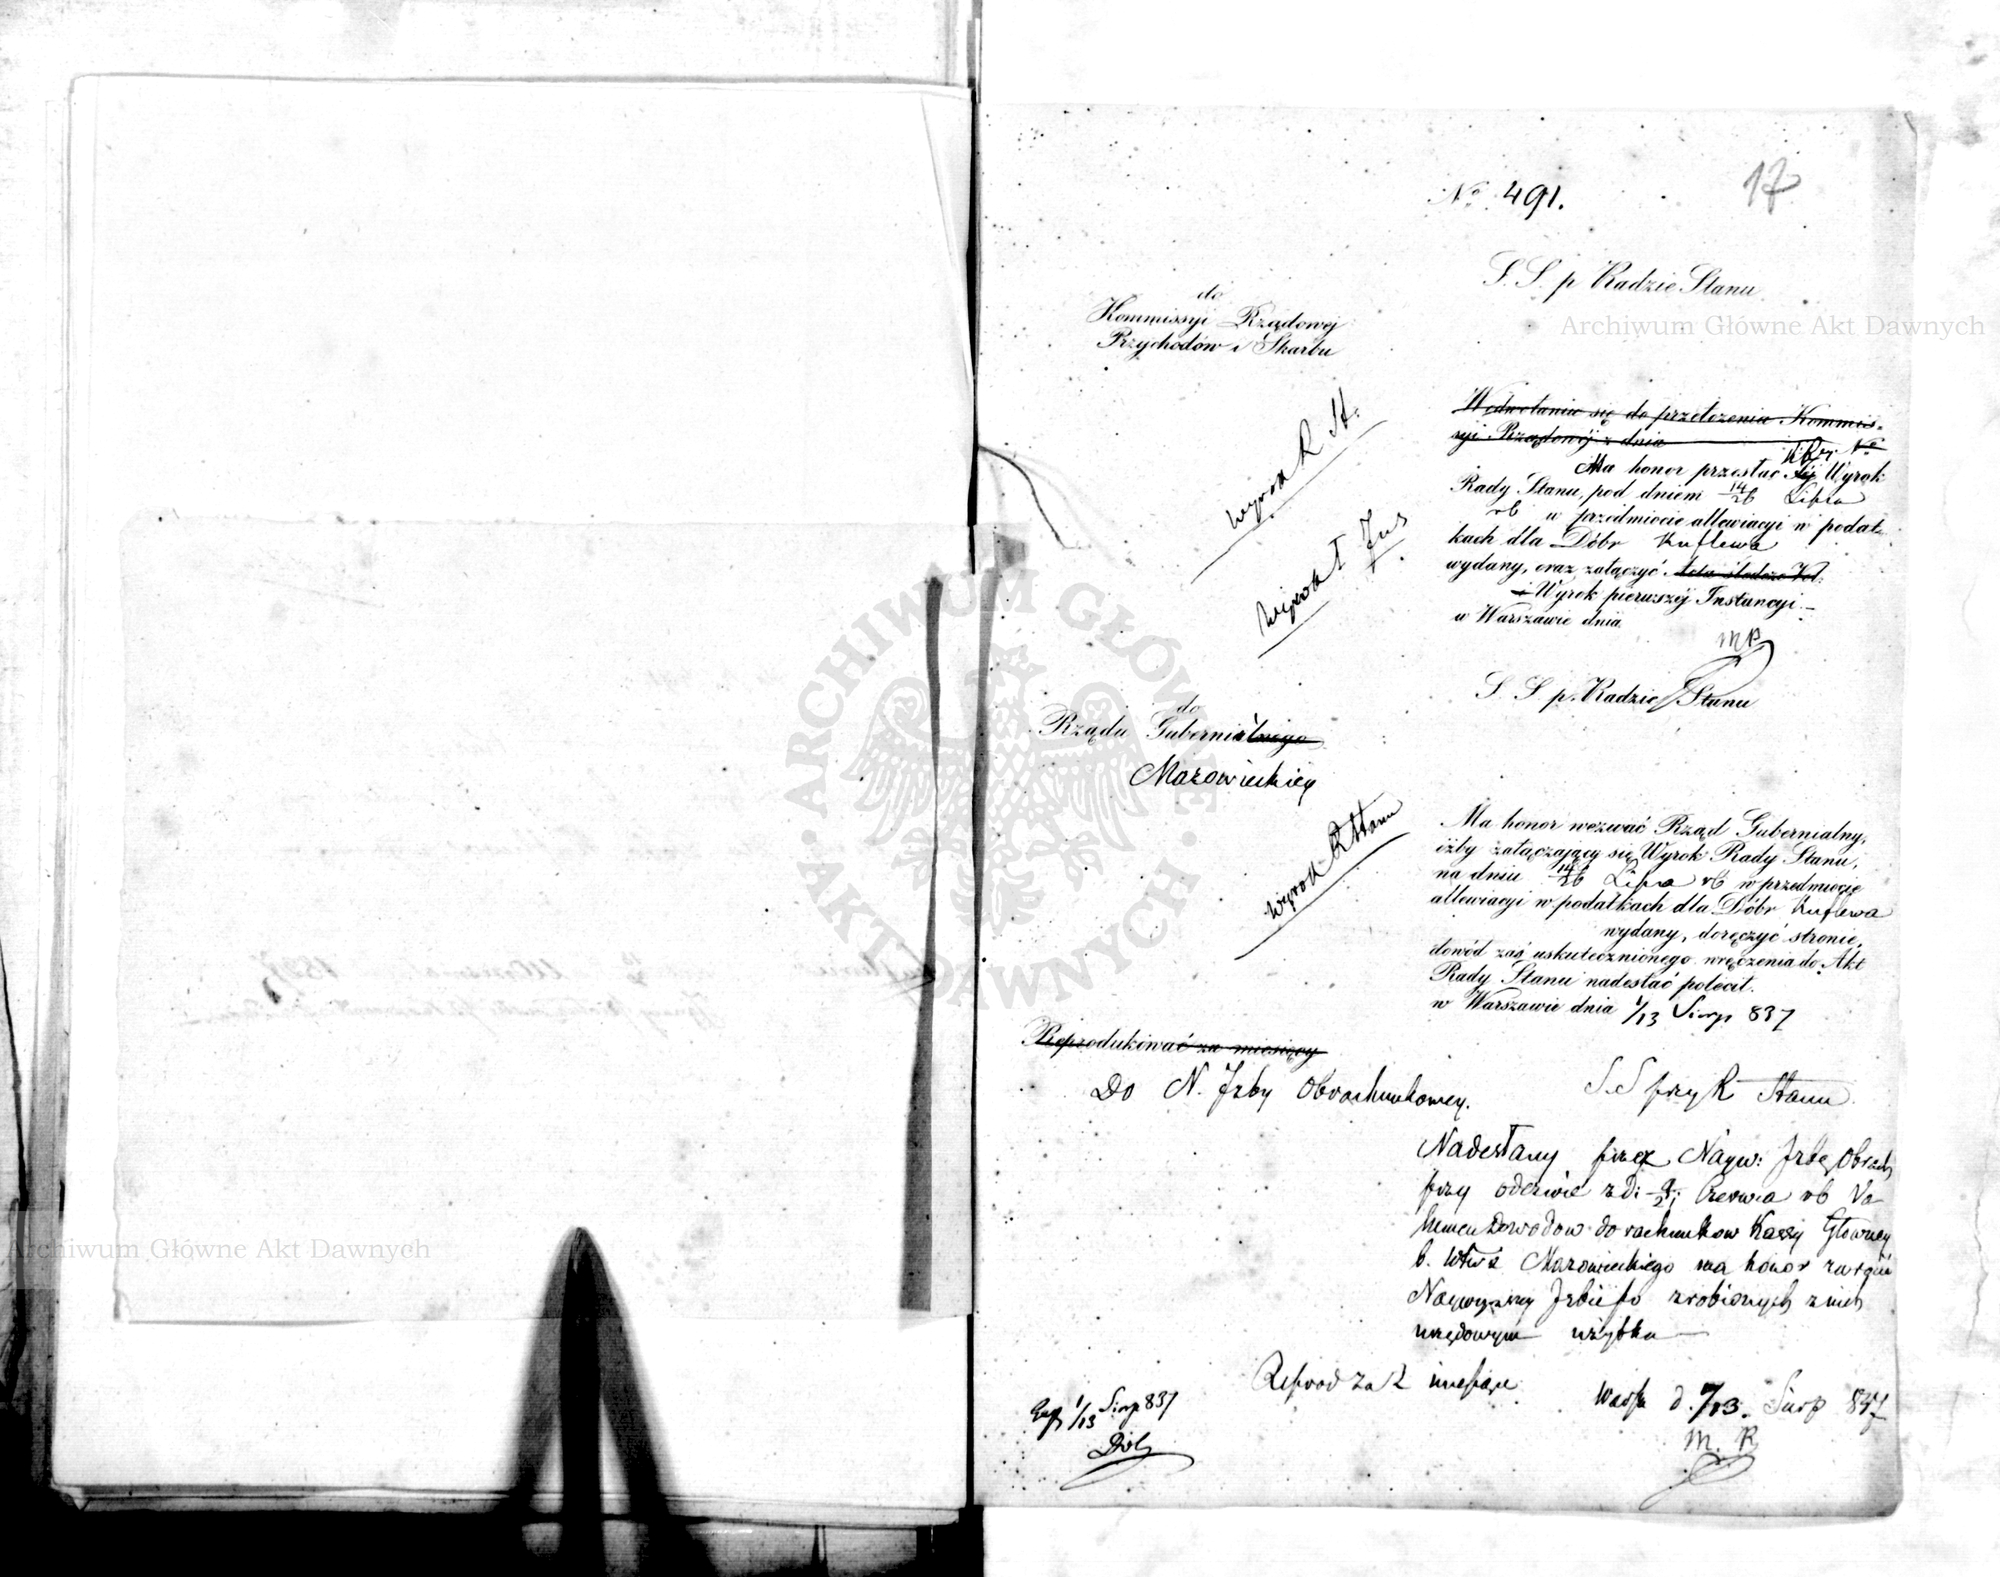 17
No 491.
S. S. p Radzie Stanu
do
Kommissyi Rządowej
Przychodów i Skarbu
Wodwołaniu się do przełożenia Kommis-
syi Rządowej z dnia No
Ma honor przesłać Jej Wyrok
Rady Stanu, pod dniem 14/26 Lipca
rb w przedmiocie allewiacyi w podat-
kach dla Dóbr Kuflewa
wydany, oraz załączyć Akta śledcze Vol:
i Wyrok pierwszej Instancyi.
w Warszawie dnia
MR
Wyrok R St.
Wyrok I Ins
S. S p. Radzie Stanu
do
Rządu Gubernialnego
Mazowieckiey
Ma honor wezwać Rząd Gubernialny,
iżby załączający się Wyrok Rady Stanu,
na dniu 14/26 Lipca rb w przedmiocie
allewiacyi w podatkach dla Dóbr Kuflewa
wydany, doręczyć stronie,
dowód zaś uskutecznionego wręczenia do Akt
Rady Stanu nadesłać polecił.
w Warszawie dnia 1/13 Sierp 837
Wyrok R Stanu
Reprodukować za miesięcy
Do N. Izby Obrachunkowey.
S. S przy R Stanu
Nadesłany przez Nayw: Izbę Obrach
przy odezwie z d: 9/21 Czerwca rb Vo
lumen Dowodow do rachunkow Kassy Główney
b. Wtwa Mazowieckiego ma honor
Naywyższey Izbie po zrobionych z nich
urzędowym użytku
Reprod za 2 miesiące
Warsz d. 1/13. Sierp 837
M. R
Exp 1/13 Sierp 837
Archiwum Główne Akt Dawnych
Archiwum Główne Akt Dawnych
ARCHIWUM GŁÓWNE · AKT DAWNYCH ·